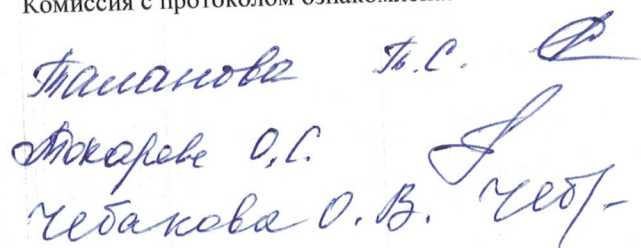 Комиссия с протоколом ознакомлена
Таланова Т.С.
Токарева О.С.
Чебакова О.В. Чеб